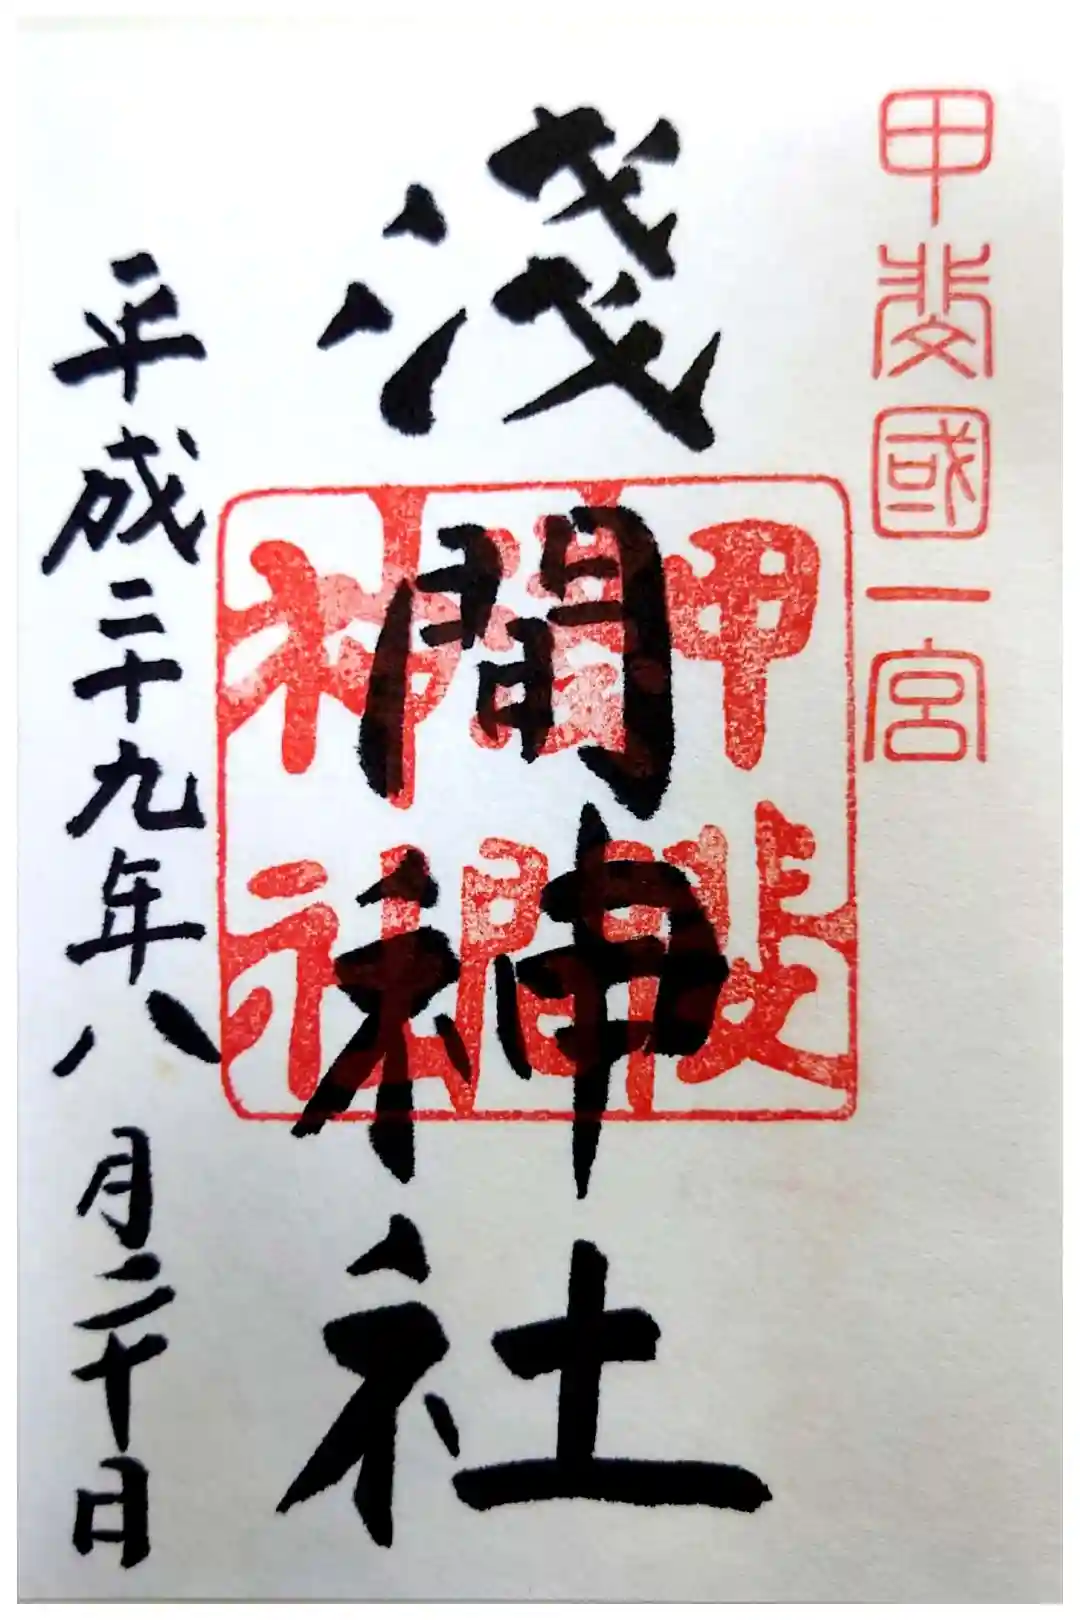 甲斐國一宮
淺間神社
甲斐
淺間
神社
平成二十九年八月二十日